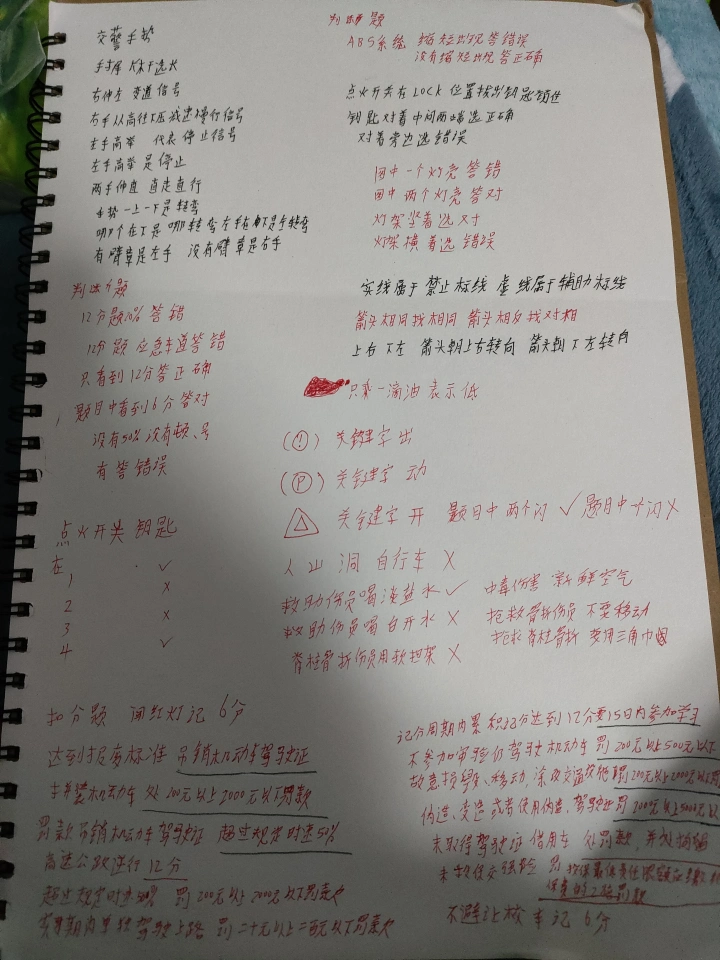 交警手势
右伸左 变道信号
右手从高往下压减速慢行信号
左手高举 代表停止信号
左手高举是停止
两手伸直 直走直行
手势一上一下是转弯
有臂章是左手 没有臂章是右手
判断题
ABS系统 缩短出现答错误
没有缩短出现答正确
点火开关在LOCK位置拔出钥匙锁住
钥匙对着中间两端选正确
对着旁边选错误
图中一个灯亮答错
图中两个灯亮答对
灯架竖着选对
灯架横着选错误
实线属于禁止标线 虚线属于辅助标线
箭头相同找相同 箭头相反找对相
上右下左 箭头朝上右转向 箭头朝下左转向
只来一滴油表示低
(!) 关键字出
(P) 关键字 动
关键字开 题目中两个闪 ✓ 题目中一个闪 X
人 山 洞 自行车 X
救助伤员喝淡盐水 ✓ 中毒伤害 新鲜空气
救助伤员喝白开水 X 抢救骨折伤员 不要移动
脊柱骨折伤员用软担架 X 抢救脊柱骨折 要用三角巾固
判断题
12分题10% 答错
12分题 应急车道答错
只看到12分答正确
题目中看到6分答对
没有50% 没有顿、号
有答错误
点火开关 钥匙
在
1 ✓
2 X
3 X
4 ✓
扣分题 闯红灯记 6分
达到报废标准 吊销机动车驾驶证
拼装机动车 处200元以上2000元以下罚款
罚款 吊销机动车驾驶证 超过规定时速50%
高速公路逆行 12分
超过规定时速50% 罚200元以上2000元以下罚款
实习期内单独驾驶上路 罚二十元以上二百元以下罚款
记分周期内累积记分达到12分要15日内参加学习
不参加审验仍驾驶机动车 罚200元以上500元以下
故意损毁、移动、涂改交通设施 罚200元以上2000元以下
伪造、变造或者使用伪造、驾驶证罚2000元以上5000元以
未取得驾驶证 借用车 处罚款，并处拘留
未投保交强险
不避让校车记 6分